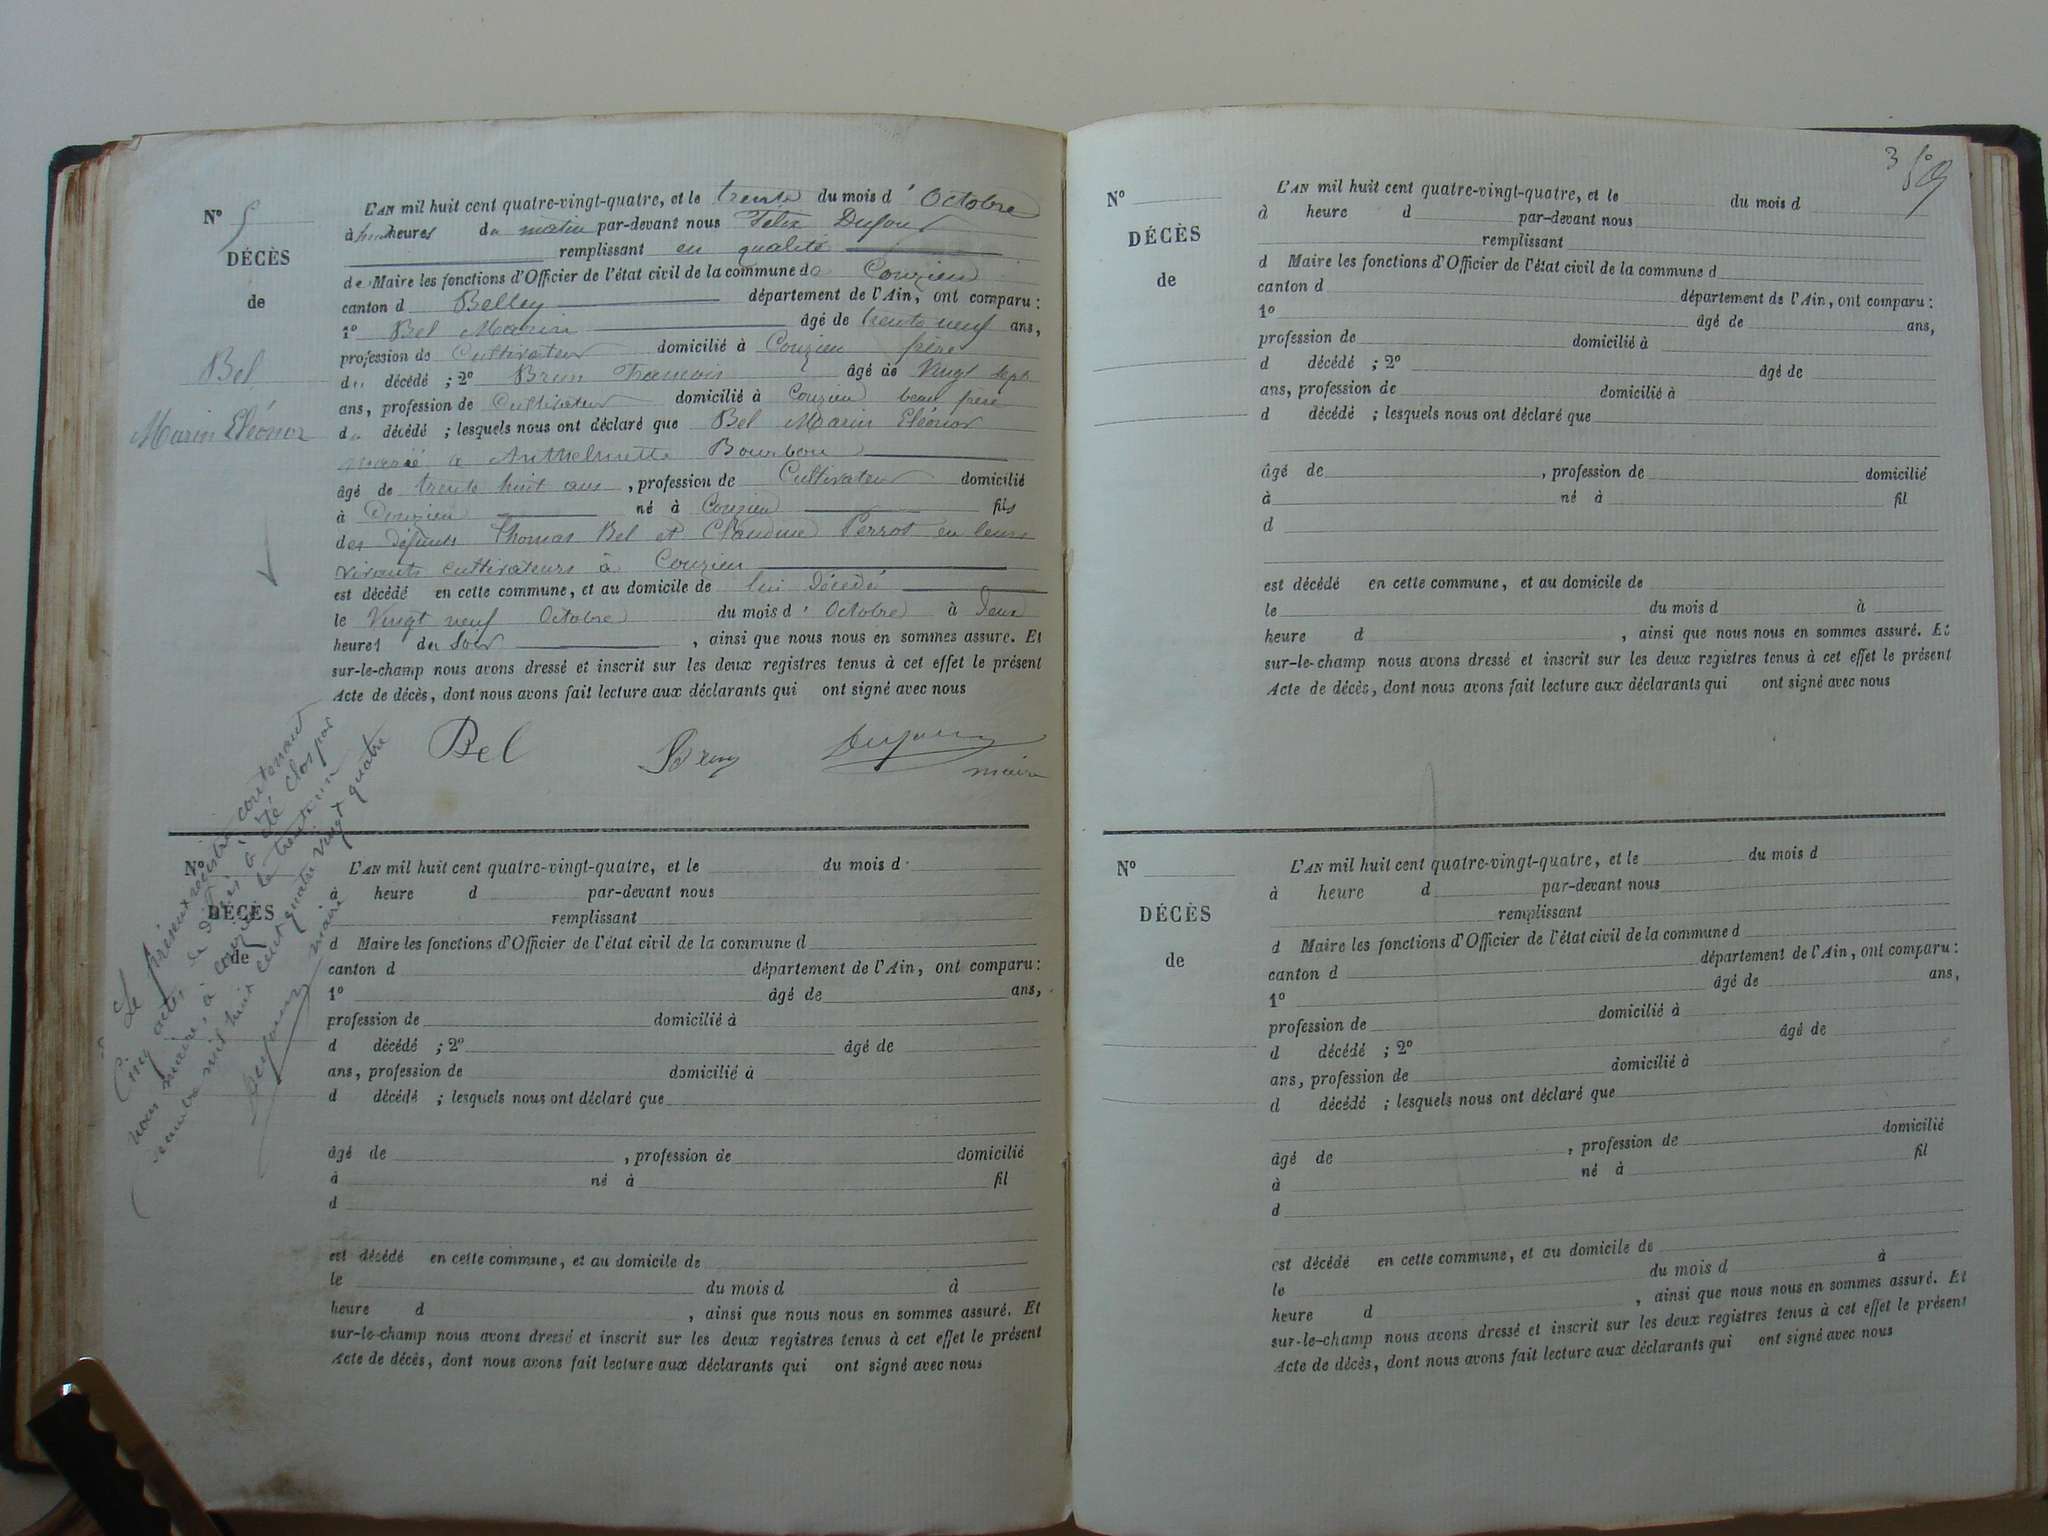 N° 5
DÉCÈS
de
Bel
Marin Eléonor
L'AN mil huit cent quatre-vingt-quatre, et le trente du mois d' Octobre
à huit heures du matin par-devant nous Félix Dufour
remplissant en qualité
de Maire les fonctions d'Officier de l'état civil de la commune de Conzieu
canton d Belley département de l'Ain, ont comparu :
1° Bel Marin âgé de trente neuf ans,
profession de Cultivateur domicilié à Conzieu frère
du décédé ; 2° Brun François âgé de Vingt sept
ans, profession de Cultivateur domicilié à Conzieu beau frère
du décédé ; lesquels nous ont déclaré que Bel Marin Eléonor
marié à Anthelmette Bourbon
âgé de trente huit ans , profession de Cultivateur domicilié
à Conzieu né à Conzieu fils
des défunts Thomas Bel et Claudine Perrot en leurs
vivants cultivateurs à Conzieu
est décédé en cette commune, et au domicile de lui décédé
le Vingt neuf Octobre du mois d' Octobre à Deux
heures du Soir , ainsi que nous nous en sommes assuré. Et
sur-le-champ nous avons dressé et inscrit sur les deux registres tenus à cet effet le présent
Acte de décès, dont nous avons fait lecture aux déclarants qui ont signé avec nous
Bel Brun Dufour
maire
Le présent registre contenant
Cinq actes de décès a été Clos par
nous maire, à Conzieu le trente un
mil huit cent quatre vingt quatre
Dufour maire
N°
DÉCÈS
de
L'AN mil huit cent quatre-vingt-quatre, et le du mois d
à heure d par-devant nous
remplissant
d Maire les fonctions d'Officier de l'état civil de la commune d
canton d département de l'Ain, ont comparu :
1° âgé de ans,
profession de domicilié à
d décédé ; 2° âgé de
ans, profession de domicilié à
d décédé ; lesquels nous ont déclaré que
âgé de , profession de domicilié
à né à fil
d
est décédé en cette commune, et au domicile de
le du mois d à
heure d , ainsi que nous nous en sommes assuré. Et
sur-le-champ nous avons dressé et inscrit sur les deux registres tenus à cet effet le présent
Acte de décès, dont nous avons fait lecture aux déclarants qui ont signé avec nous
N°
DÉCÈS
de
L'AN mil huit cent quatre-vingt-quatre, et le du mois d
à heure d par-devant nous
remplissant
d Maire les fonctions d'Officier de l'état civil de la commune d
canton d département de l'Ain, ont comparu :
1° âgé de ans,
profession de domicilié à
d décédé ; 2° âgé de
ans, profession de domicilié à
d décédé ; lesquels nous ont déclaré que
âgé de , profession de domicilié
à né à fil
d
est décédé en cette commune, et au domicile de
le du mois d à
heure d , ainsi que nous nous en sommes assuré. Et
sur-le-champ nous avons dressé et inscrit sur les deux registres tenus à cet effet le présent
Acte de décès, dont nous avons fait lecture aux déclarants qui ont signé avec nous
N°
DÉCÈS
de
L'AN mil huit cent quatre-vingt-quatre, et le du mois d
à heure d par-devant nous
remplissant
d Maire les fonctions d'Officier de l'état civil de la commune d
canton d département de l'Ain, ont comparu :
1° âgé de ans,
profession de domicilié à
d décédé ; 2° âgé de
ans, profession de domicilié à
d décédé ; lesquels nous ont déclaré que
âgé de , profession de domicilié
à né à fil
d
est décédé en cette commune, et au domicile de
le du mois d à
heure d , ainsi que nous nous en sommes assuré. Et
sur-le-champ nous avons dressé et inscrit sur les deux registres tenus à cet effet le présent
Acte de décès, dont nous avons fait lecture aux déclarants qui ont signé avec nous